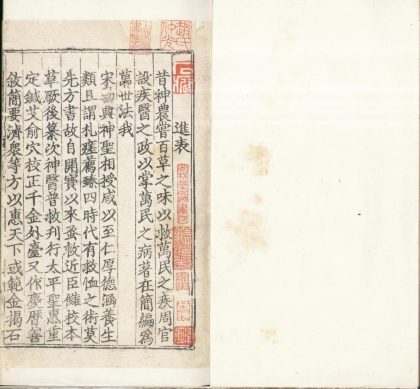 進表
昔神農嘗百草之味以救萬民之疾周官
設疾醫之政以掌萬民之病著在簡編爲
萬世法我
宋勃興神聖相授咸以至仁厚德涵養生
類且謂札瘥薦臻四時代有救恤之術莫
先方書故自開寶以來蚤敕近臣讎校本
草厥後纂次神醫普救刋行太平聖惠重
定鍼艾俞穴校正千金外臺又作慶曆善
救簡要濟衆等方以惠天下或範金揭石